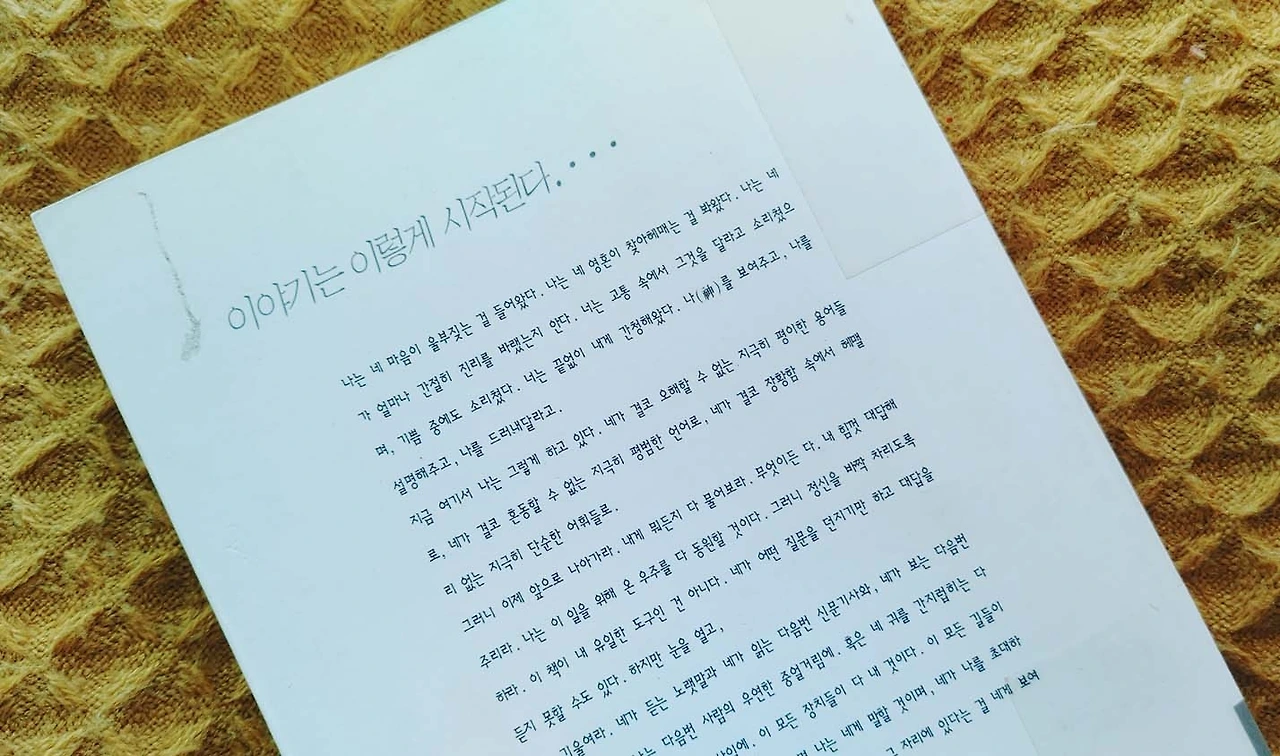 이야기는 이렇게 시작된다....
나는 네 마음이 울부짖는 걸 들어왔다. 나는 네 영혼이 찾아헤매는 걸 봐왔다. 나는 네
가 얼마나 간절히 진리를 바랬는지 안다. 너는 고통 속에서 그것을 달라고 소리쳤으
며, 기쁨 중에도 소리쳤다. 너는 끝없이 내게 간청해왔다. 나(神)를 보여주고, 나를
설명해주고, 나를 드러내달라고.
지금 여기서 나는 그렇게 하고 있다. 네가 결코 오해할 수 없는 지극히 평이한 용어들
로, 네가 결코 혼동할 수 없는 지극히 평범한 언어로, 네가 결코 장황함 속에서 헤맬
리 없는 지극히 단순한 어휘들로.
그러니 이제 앞으로 나아가라. 내게 뭐든지 다 물어보라. 무엇이든 다. 내 힘껏 대답해
주리라. 나는 이 일을 위해 온 우주를 다 동원할 것이다. 그러니 정신을 바짝 차리도록
하라. 이 책이 내 유일한 도구인 건 아니다. 네가 어떤 질문을 던지기만 하고 대답을
듣지 못할 수도 있다. 하지만 눈을 열고,
기울여라. 네가 듣는 노랫말과 네가 읽는 다음번 신문기사와, 네가 보는 다음번
다음번 사람의 우연한 중얼거림에. 혹은 네 귀를 간지럽히는 다
이 모든 장치들이 다 내 것이다. 이 모든 길들이
나는 네게 말할 것이며, 네가 나를 초대하
그 자리에 있다는 걸 네게 보여